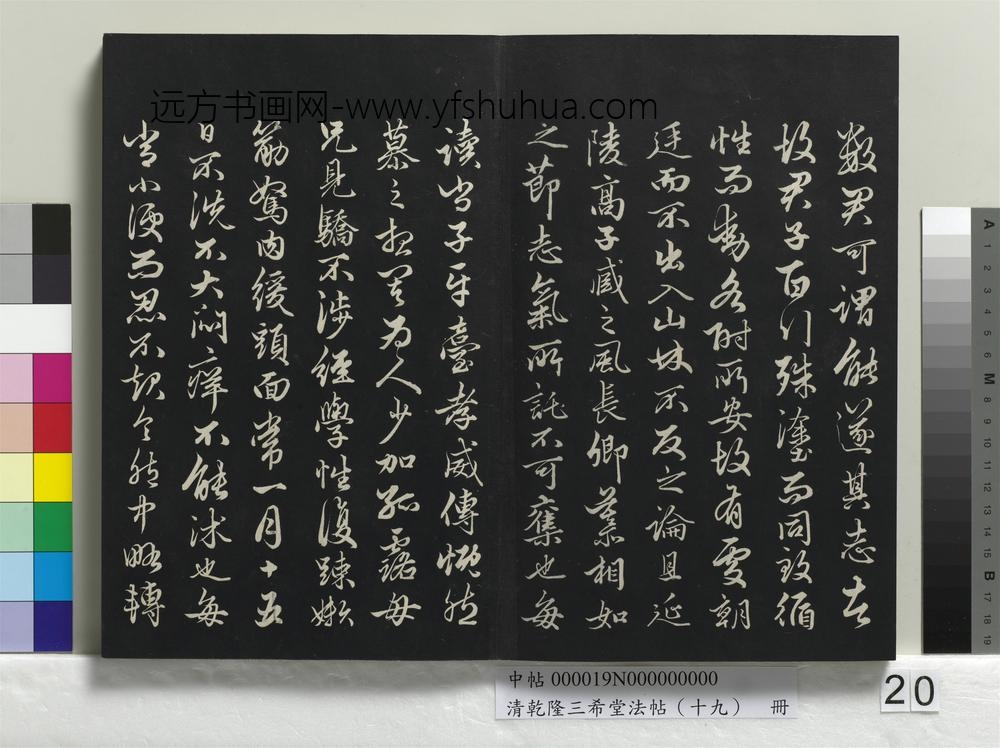 數君可謂能遂其志者
故君子百行殊塗而同致循
性而動各附所安故有處朝
廷而不出入山林不反之論且延
陵高子臧之風長卿慕相如
之節志氣所託不可奪也每
讀尚子平臺孝威傳慨然
慕之想其為人少加孤露母
兄見驕不涉經學性復踈嬾
筋駑肉緩頭面常一月十五
日不洗不大悶癢不能沐也每
當小便而忍不起令胞中略轉
远方书画网-www.yfshuhua.com
中帖 000019N000000000
清乾隆三希堂法帖（十九） 冊
20
A 1 2 3 4 5 6 M 8 9 10 11 12 13 14 15 B 17 18 19